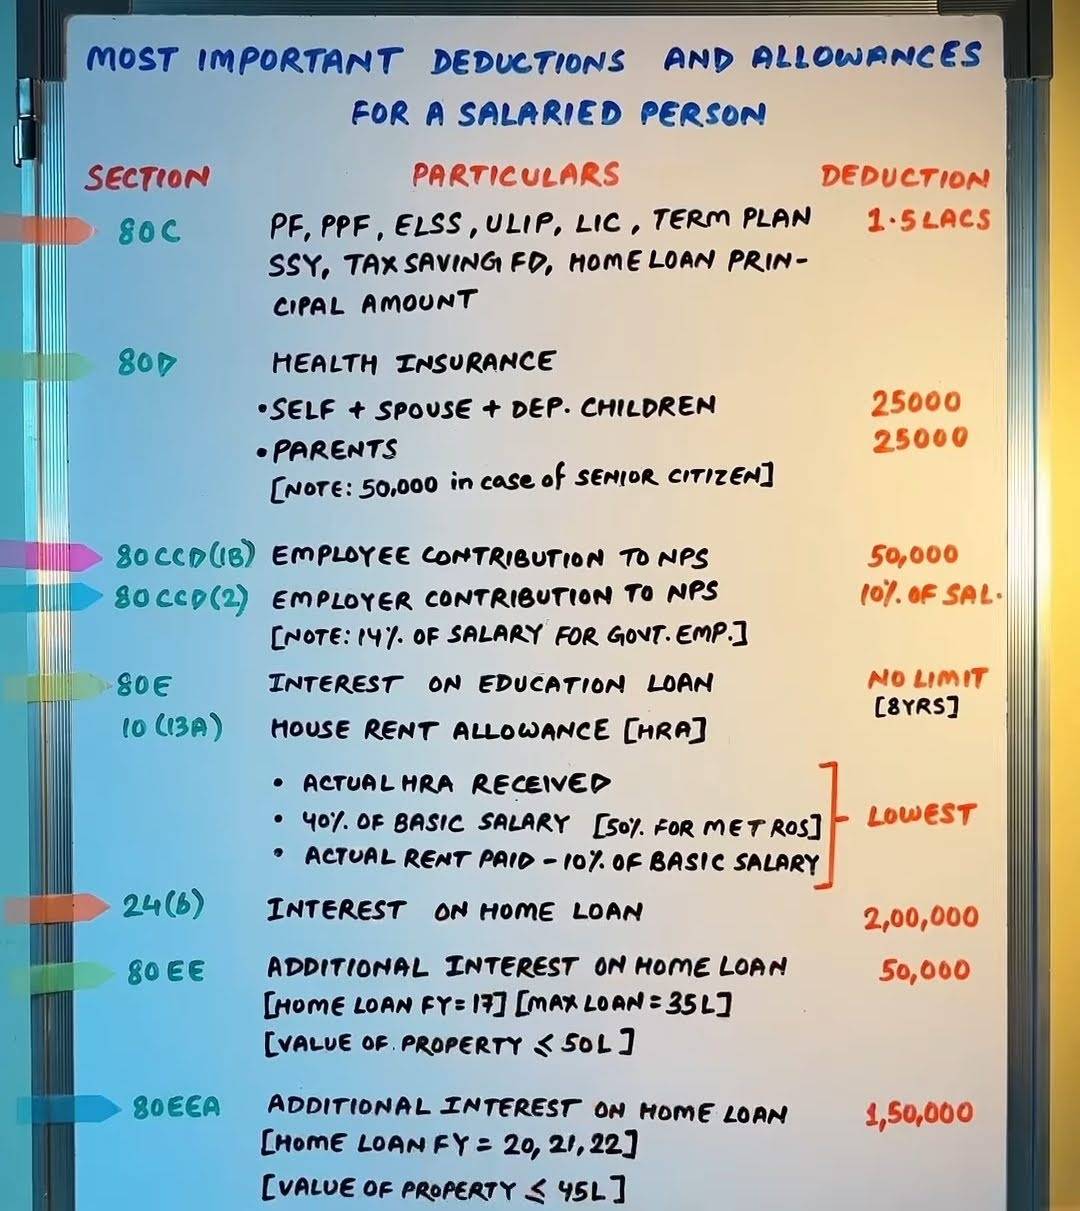 MOST IMPORTANT DEDUCTIONS AND ALLOWANCES
FOR A SALARIED PERSON
SECTION PARTICULARS DEDUCTION
80C PF, PPF, ELSS, ULIP, LIC, TERM PLAN 1.5 LACS
SSY, TAX SAVING FD, HOME LOAN PRIN-
CIPAL AMOUNT
80D HEALTH INSURANCE
• SELF + SPOUSE + DEP. CHILDREN 25000
• PARENTS 25000
[NOTE: 50,000 in case of SENIOR CITIZEN]
80CCD(1B) EMPLOYEE CONTRIBUTION TO NPS 50,000
80CCD(2) EMPLOYER CONTRIBUTION TO NPS 10% OF SAL.
[NOTE: 14% OF SALARY FOR GOVT. EMP.]
80E INTEREST ON EDUCATION LOAN NO LIMIT
[8YRS]
10(13A) HOUSE RENT ALLOWANCE [HRA]
• ACTUAL HRA RECEIVED
• 40% OF BASIC SALARY [50% FOR METROS] LOWEST
• ACTUAL RENT PAID - 10% OF BASIC SALARY
24(b) INTEREST ON HOME LOAN 2,00,000
80EE ADDITIONAL INTEREST ON HOME LOAN 50,000
[HOME LOAN FY = 17] [MAX LOAN = 35L]
[VALUE OF PROPERTY ≤ 50L]
80EEA ADDITIONAL INTEREST ON HOME LOAN 1,50,000
[HOME LOAN FY = 20, 21, 22]
[VALUE OF PROPERTY ≤ 45L]